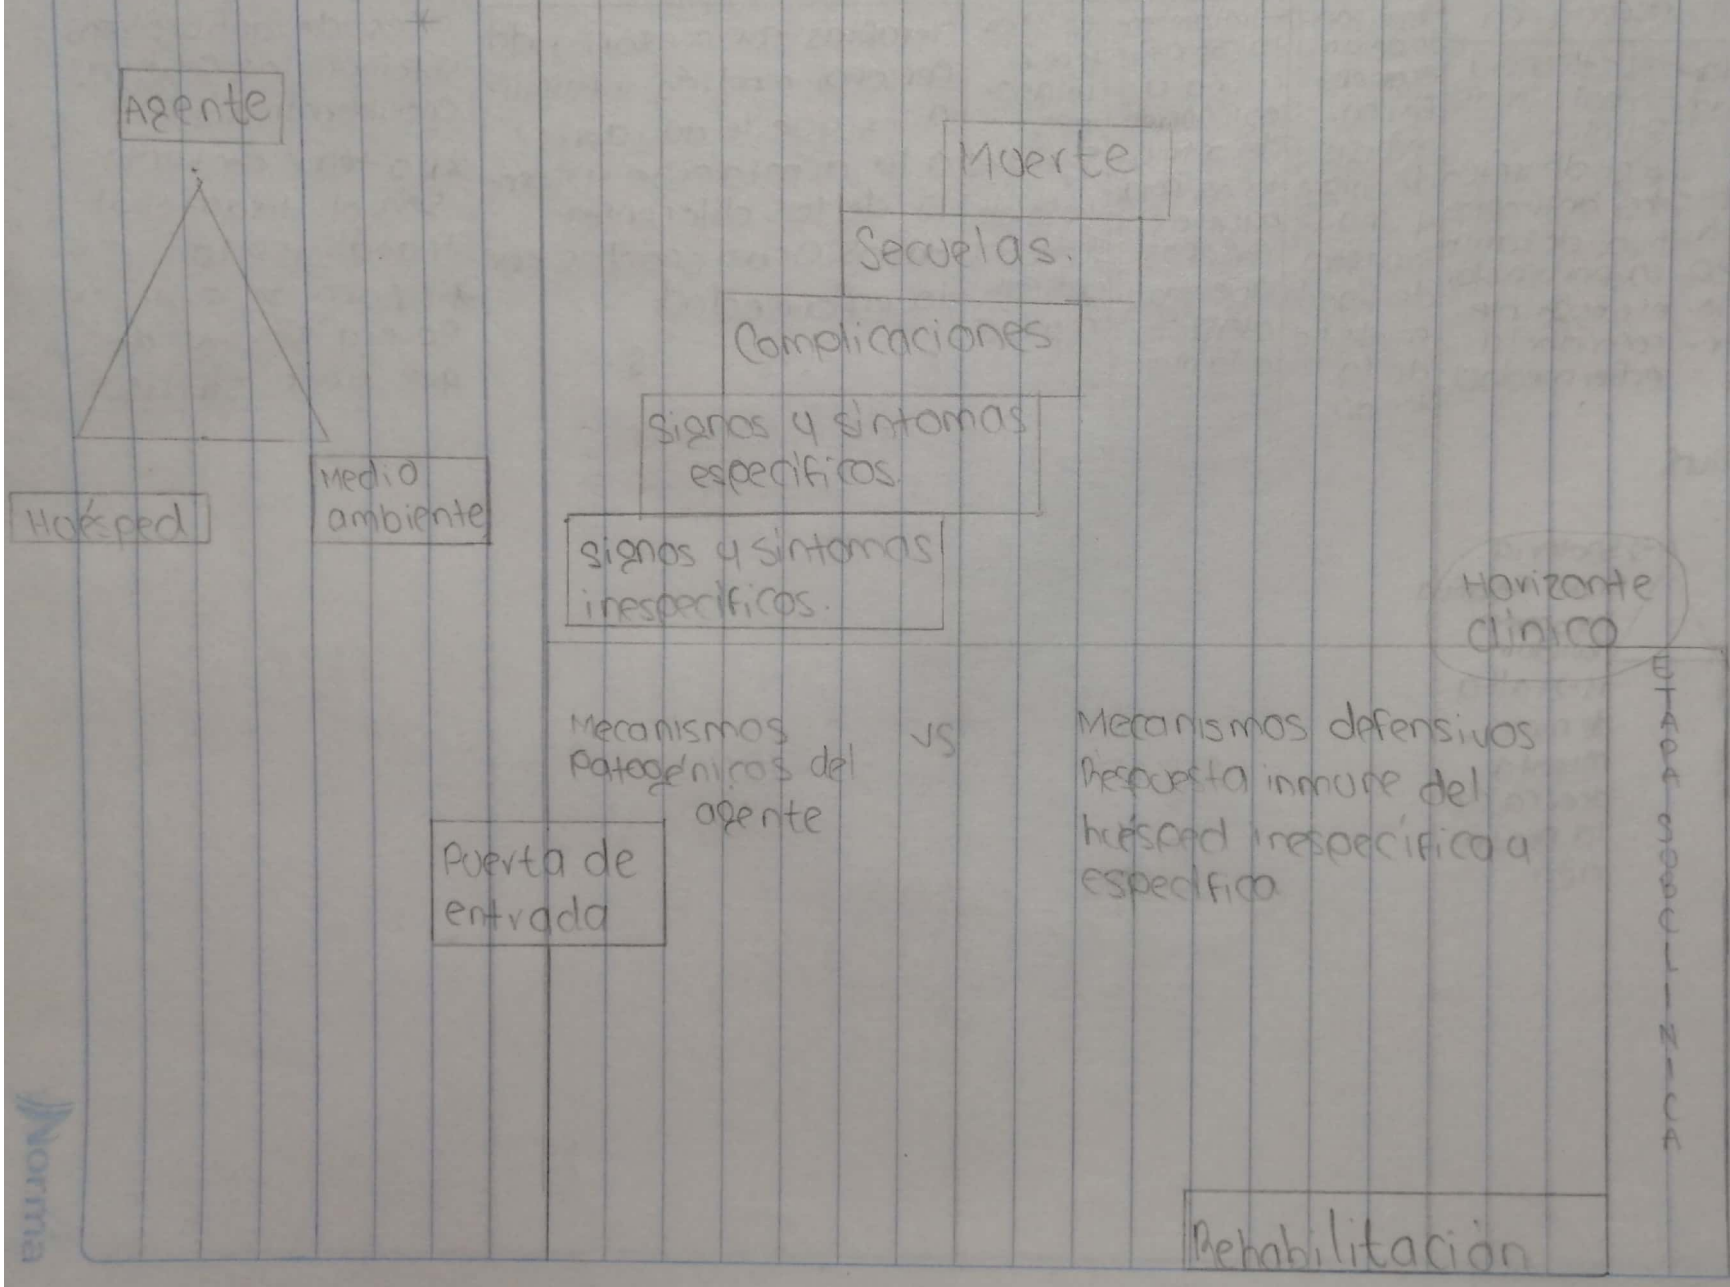 Agente
Muerte
Secuelas.
Complicaciones
signos y síntomas
especificos.
signos y sintomas
inespecificos.
Huésped
Medio
ambiente
Horizonte
clínico
Mecanismos
Patogénicos del
agente
vs
Mecanismos defensivos
Respuesta inmune del
huésped inespecífica y
especifica
Puerta de
entrada
ETAPA SUBCLINICA
Rehabilitación
Norma